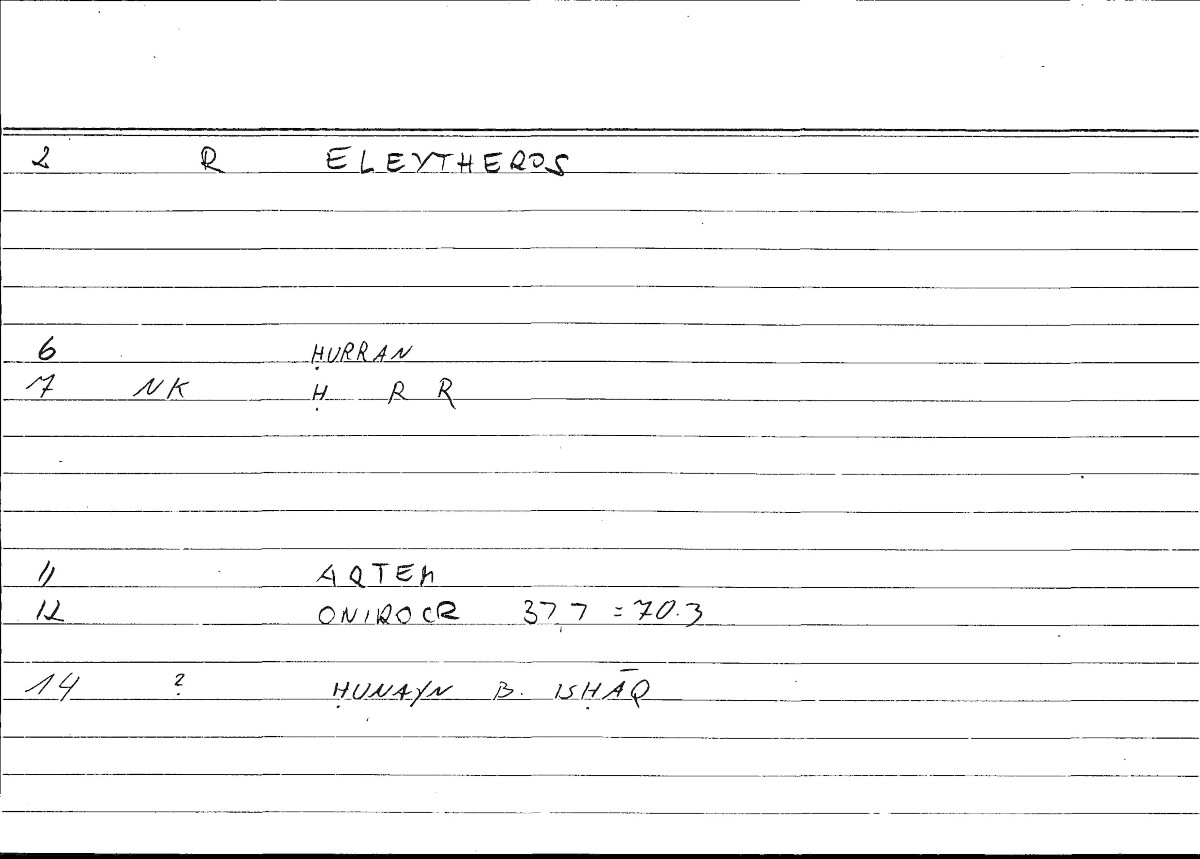 2 R ELEYTHEROS
6 ḤURRAN
7 NK Ḥ R R
11 ARTEM
12 ONIROCR 37,7 = 70.3
14 ? ḤUNAYN B. ISḤĀQ